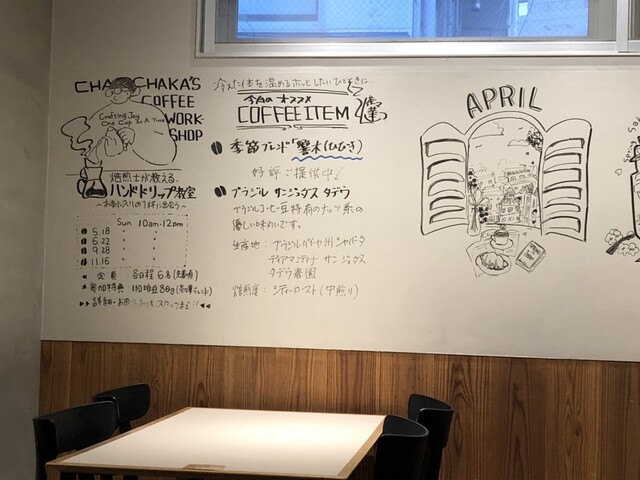 CHAKA CHAKA'S
COFFEE
WORK-
SHOP
Crafting Joy
One Cup At A Time
焙煎士が教える
ハンドドリップ教室
～お気に入りの1杯に出会う～
Sun 10am-12pm
5.18 〃 〃
6.22 〃 〃
9.28 〃 〃
11.16 〃 〃
★ 定員 各日程6名(先着順)
★ 参加特典 コーヒー豆80g(季節ブレンド)
▶▶詳細・お申し込みは、スタッフまで!!◀◀
冷えた体を温めるホッとしたいひとときに
今月のオススメ
COFFEE ITEM
季節ブレンド「響木(ひびき)
好評ご提供中!
ブラジル サンジョゼス タデウ
ブラジルコーヒー豆特有のナッツ系の
優しい味わいです。
生産地: ブラジル バイーア州 シャパーダ
ディアマンティナ サンジュダス
タデウ農園
焙煎度: シティーロースト(中煎り)
APRIL